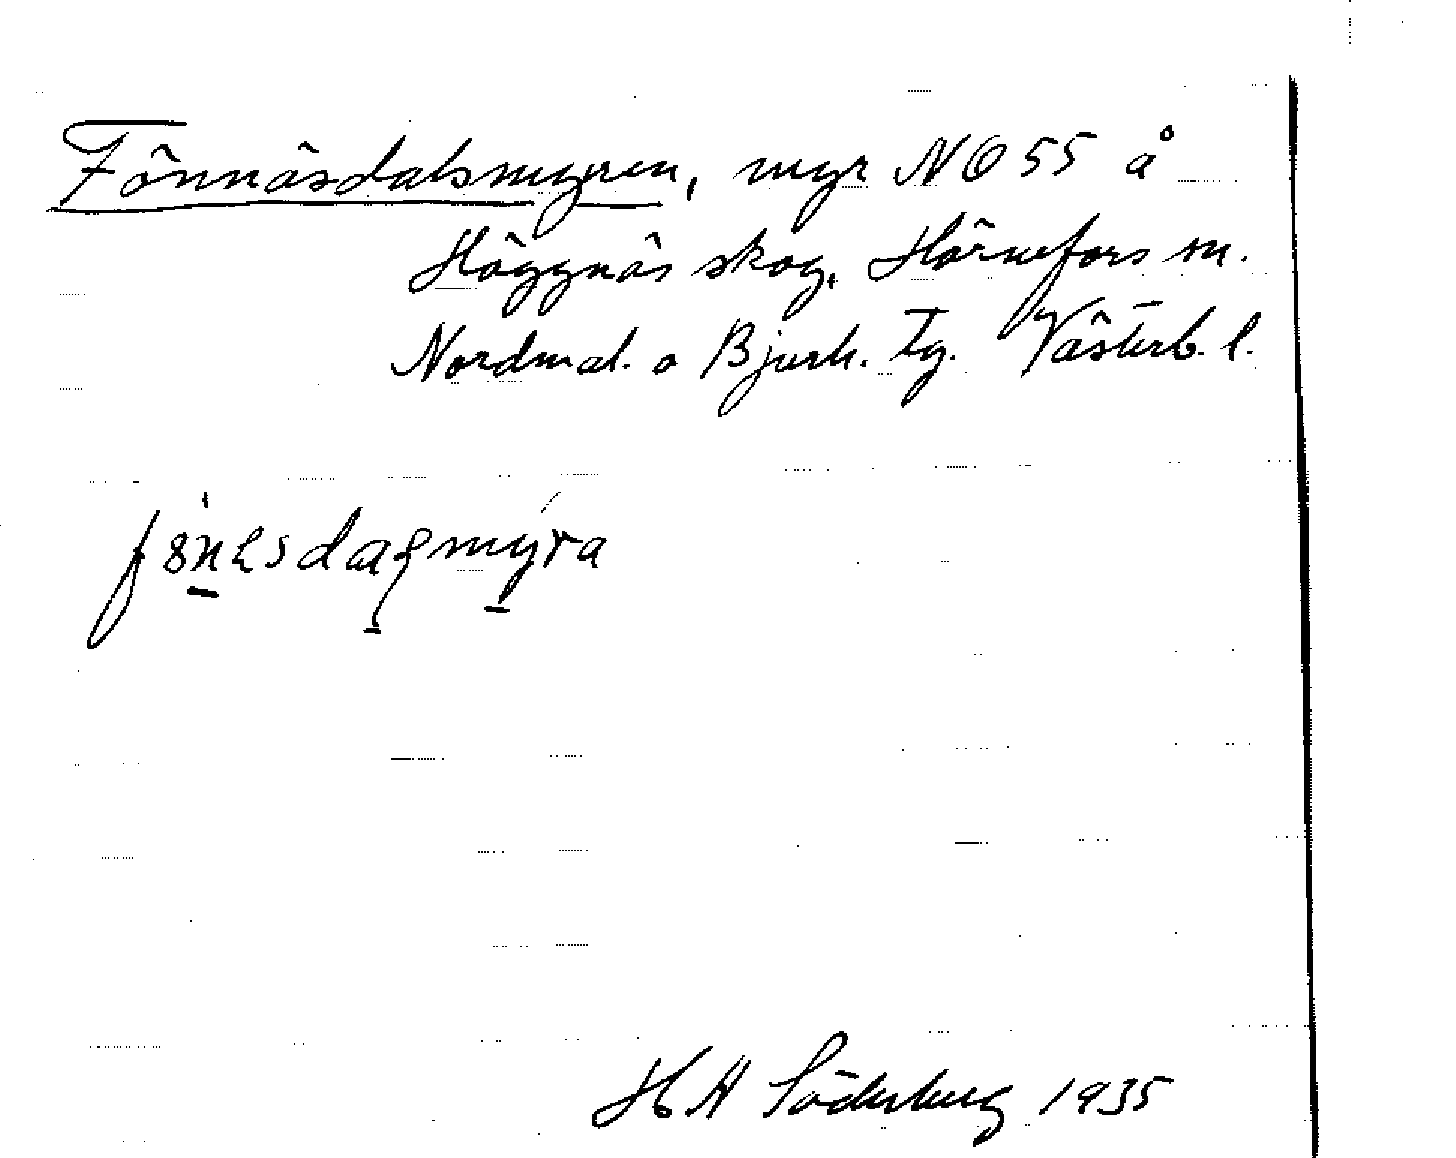 Fönnäsdalsmyren, myr NO 55 å
Häggnäs skog, Hörnefors sn.
Nordmal. o Bjurh. tg. Västerb. l.
H A Söderberg 1935